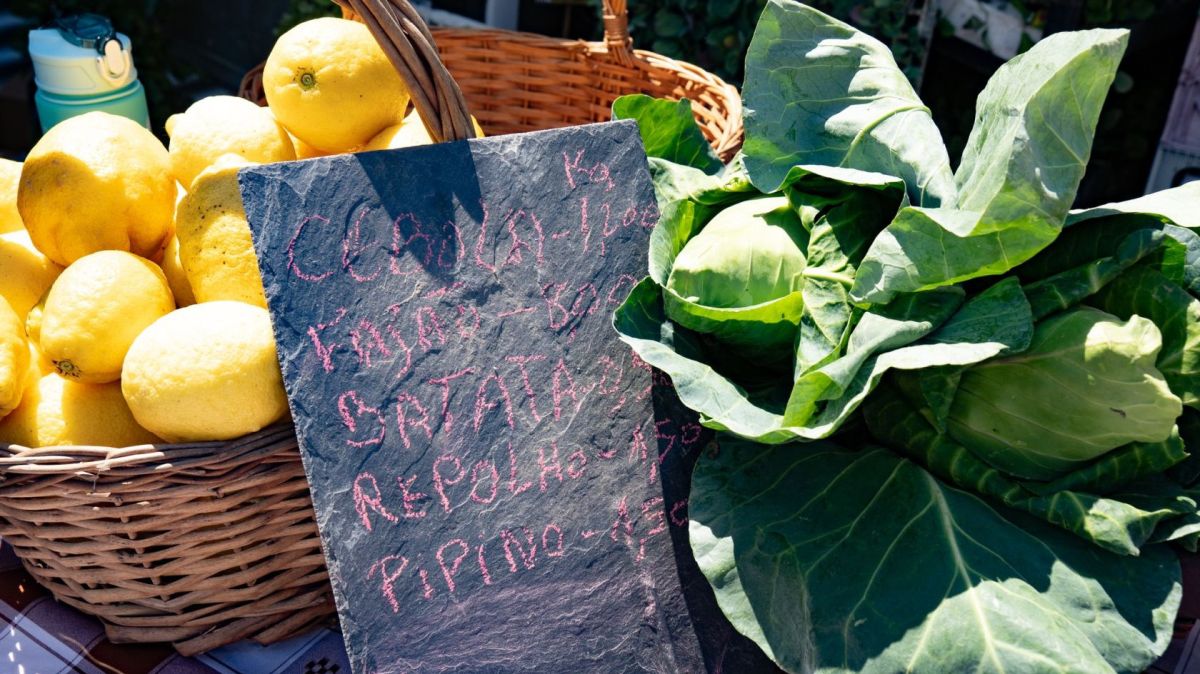 Kg
CEBOL(A)-1,200
FAJÃO-800
BATATA
REPOLHO-1,50
PIPINO-1,50